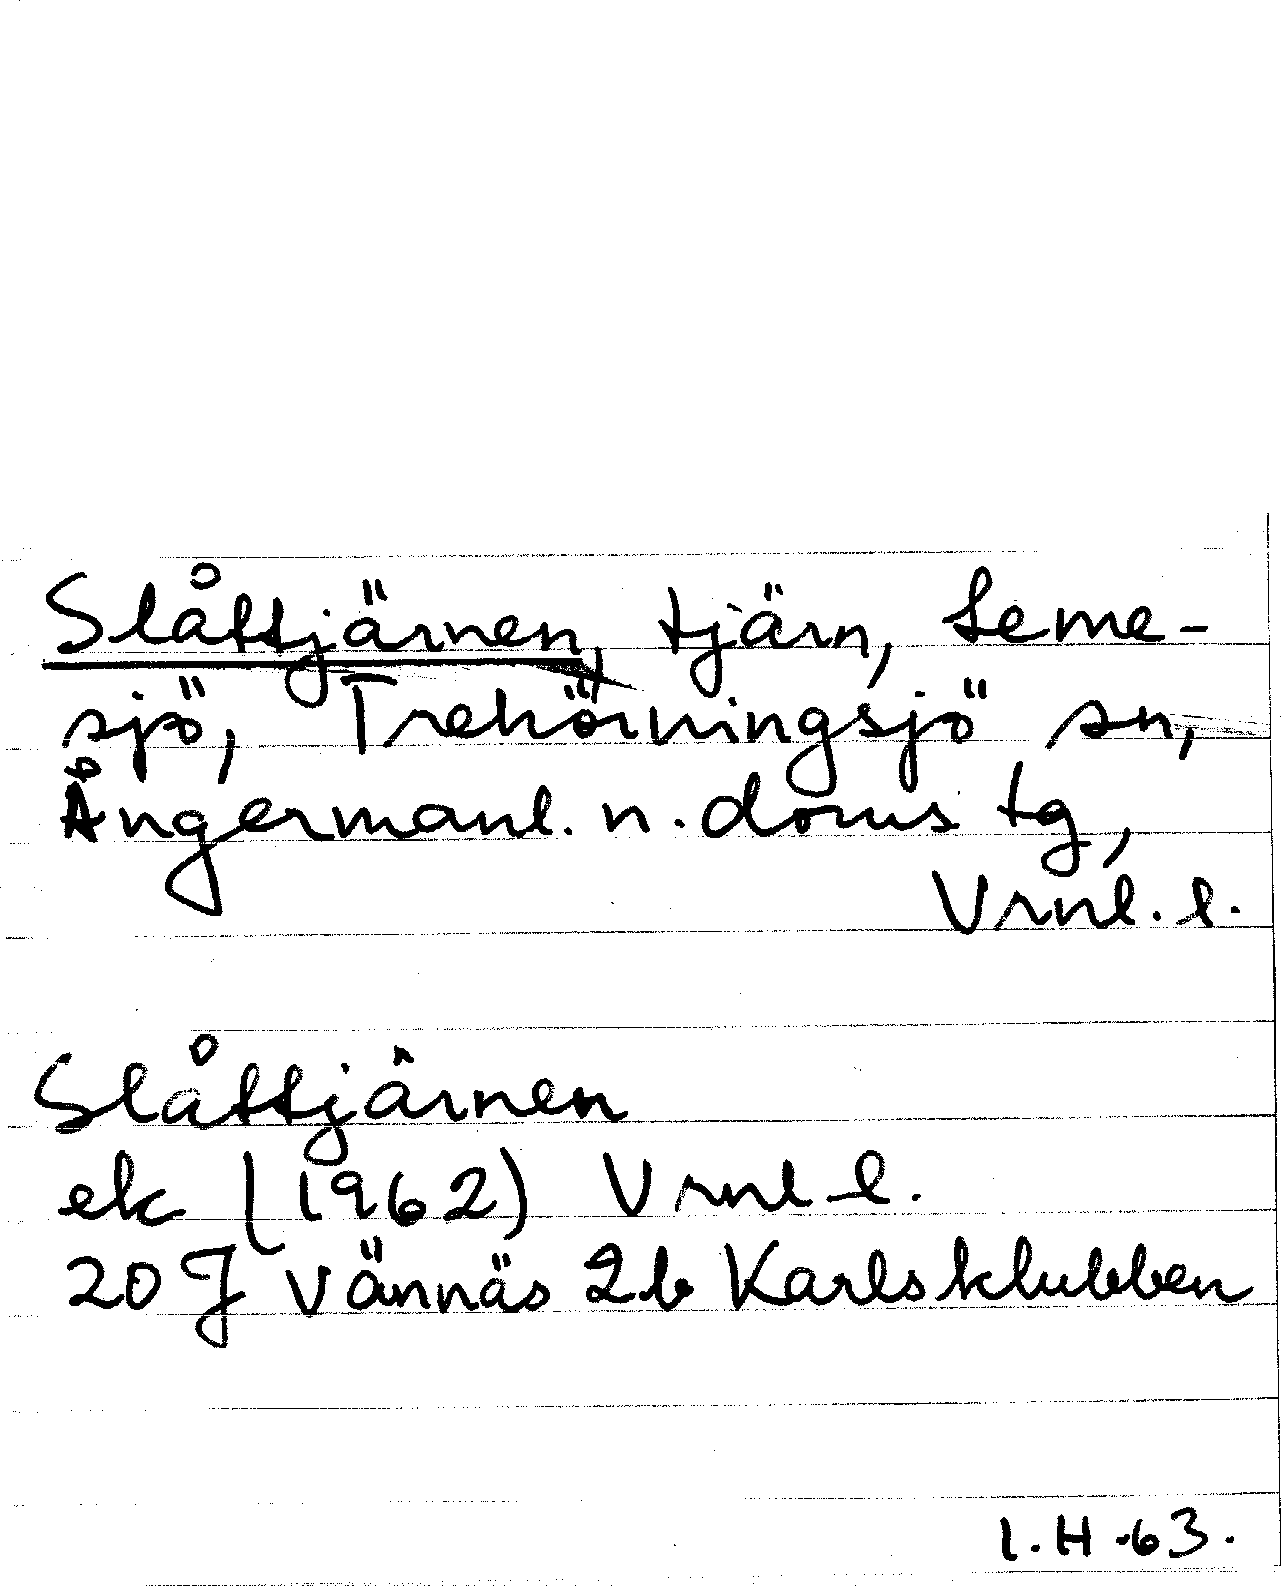 Slåttjärnen, tjärn, Leme-
sjö, Trehörningsjö sn,
Ångermanl. n. doms tg,
Vrnl. l.
Slåttjärnen
ek (1962) Vrnl l.
20 J Vännäs 2b Karlsklubben
I. H -63.